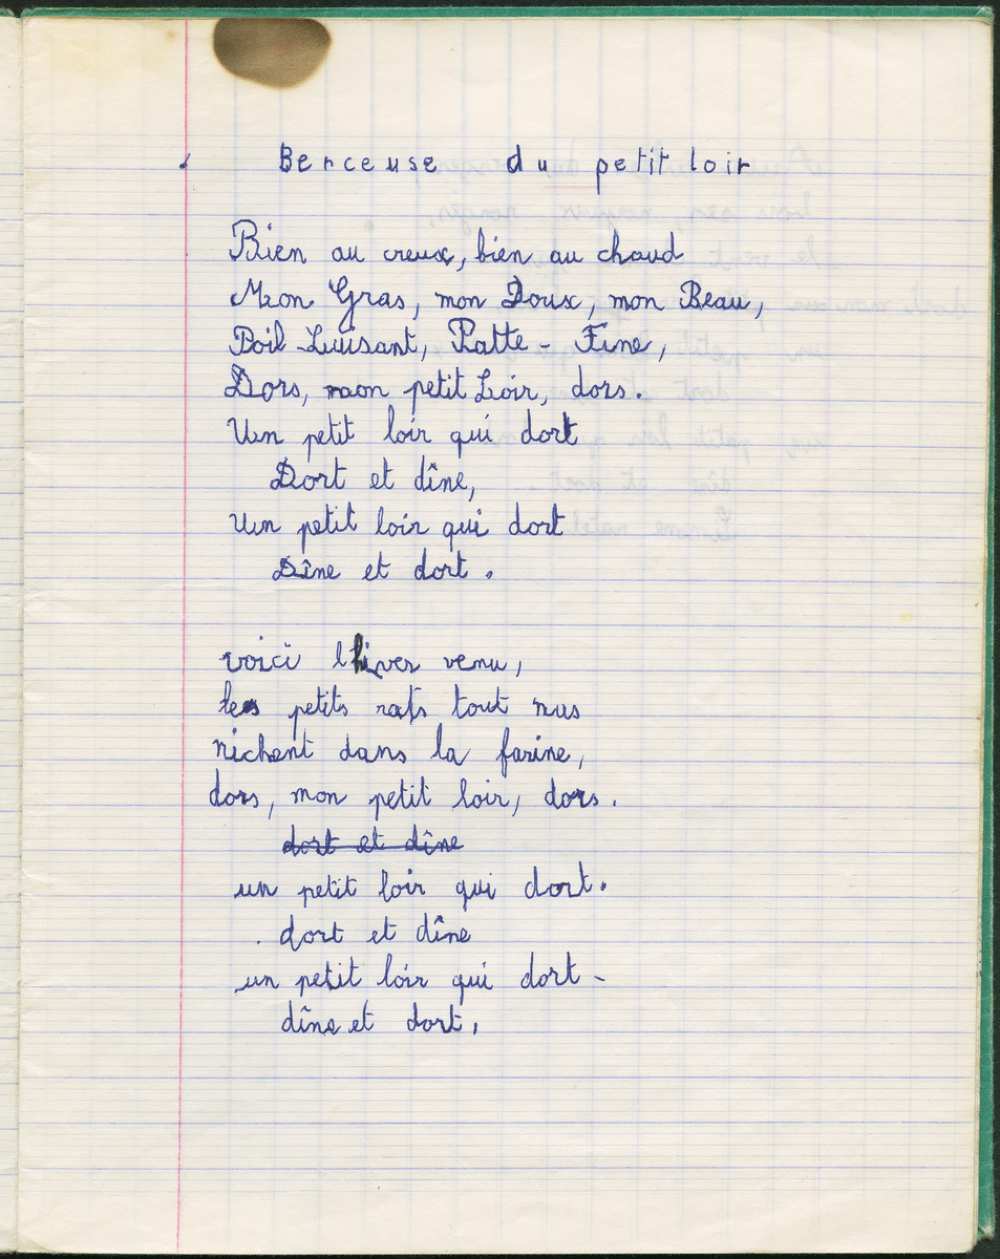 Berceuse du petit loir
Bien au creux, bien au chaud
Mon Gras, mon Doux, mon Beau,
Poil-Luisant, Patte-Fine,
Dors, mon petit Loir, dors.
Un petit loir qui dort
Dort et dîne,
Un petit loir qui dort
Dîne et dort.
voici l'hiver venu,
les petits rats tout nus
nichent dans la farine,
dors, mon petit loir, dors.
dort et dîne
un petit loir qui dort.
dort et dîne
un petit loir qui dort -
dîne et dort,